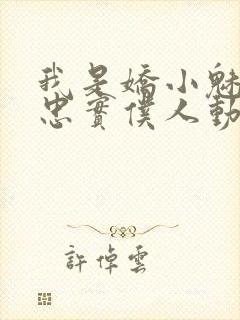 我是嬌小魅
忠實僕人動
許倬雲